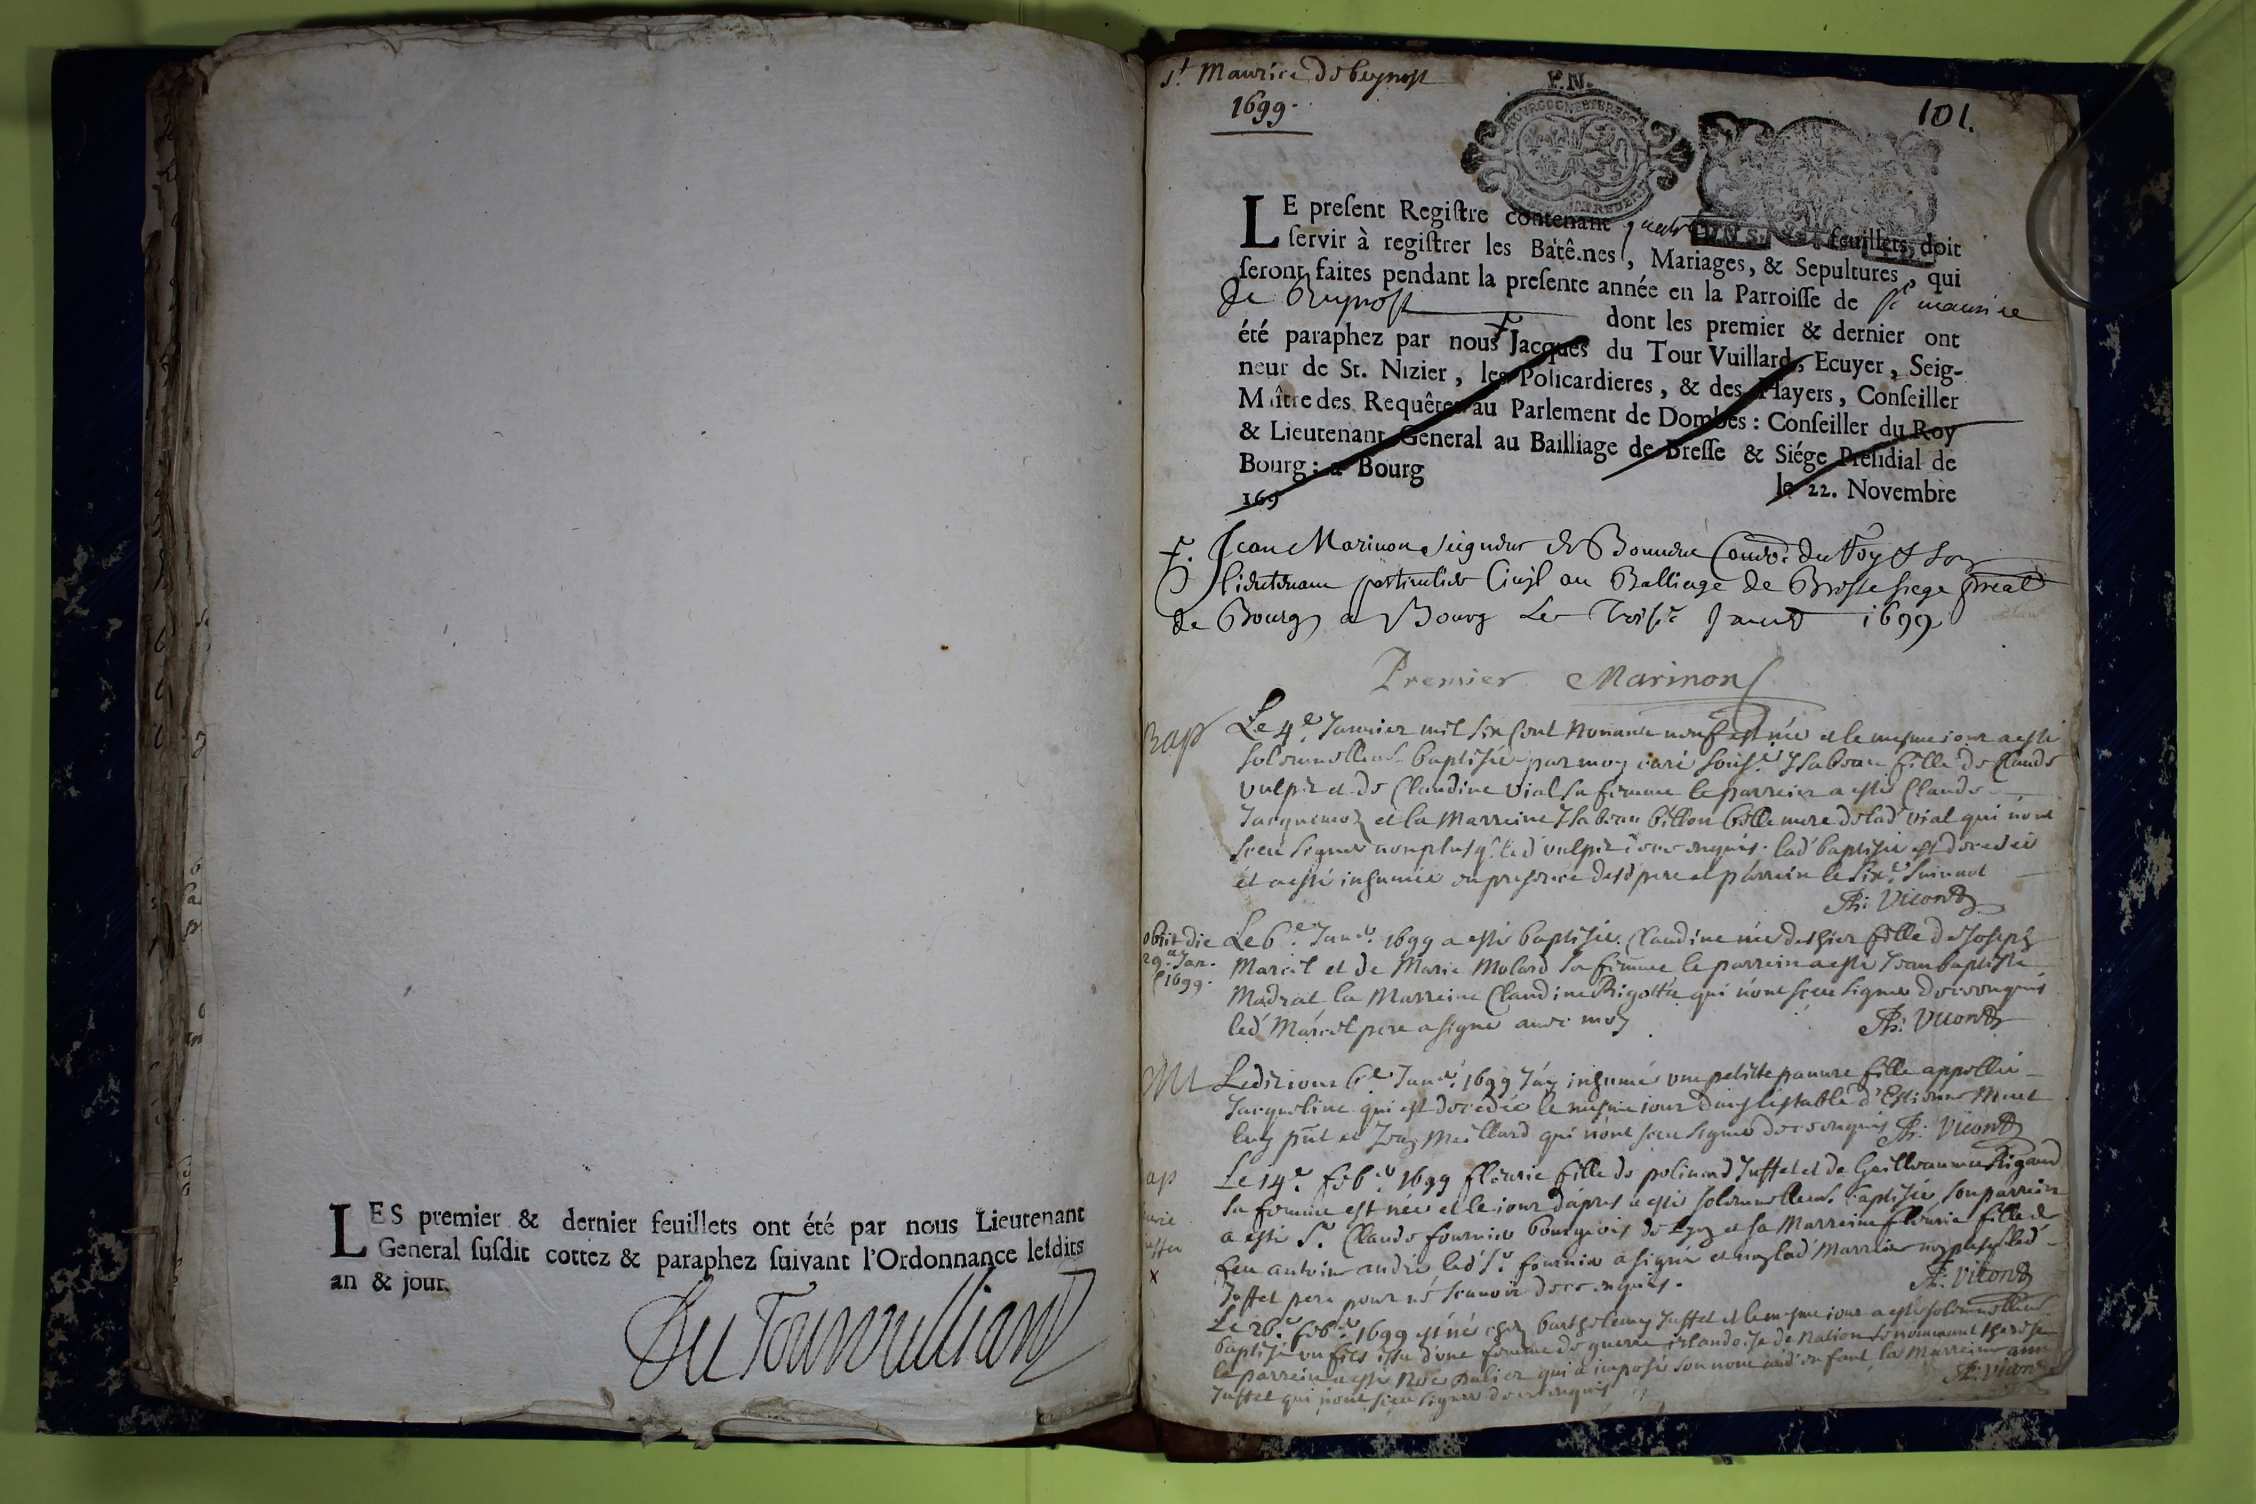 LES premier & dernier feuillets ont été par nous Lieutenant
General susdit cottez & paraphez suivant l'Ordonnance lesdits
an & jour.
Du Tour Vuilliard
St Maurice de beynost
1699.
101.
LE present Registre contenant quatre feuillets, doit
servir à registrer les Batêmes, Mariages, & Sepultures, qui
seront faites pendant la presente année en la Parroisse de St maurice
de Beynost dont les premier & dernier ont
été paraphez par nous Jacques du Tour Vuillard, Ecuyer, Seig-
neur de St. Nizier, les Policardieres, & des Mayers, Conseiller
Maître des Requêtes au Parlement de Dombes : Conseiller du Roy
& Lieutenant General au Bailliage de Bresse & Siége Présidial de
Bourg : a Bourg le 22. Novembre
169
Jean Marinon seigneur de Conser du Roy & son
lieutenant particulier Civil au Balliage de Bresse siege
de Bourg a Bourg Le Troise Janvr 1699
Premier Marinon
Bap
Le 4e Janvier mil six cent Nonante neuf est née et le mesme jour a esté
solemnellemt baptisée par moy curé soussé Ysabeau fille de Claude
vulpir et de Claudine Vial sa femme le parrein a esté Claude
Jacquemoz et la Marreine Ysabeau billon belle mere de lad Vial qui n'ont
sceu signer non plus q. led vulpir de ce enquis. lad baptisée est decedée
et a esté inhumée en presence desd pere et parrein le sixe suivant
Ph: Viconte
obiit die
29a Jan.
1699.
Le 6e Janvr 1699 a esté baptisée Claudine née d'hier fille de Joseph
Marcel et de Marie Molard sa femme le parrein a esté Jean baptiste
Madrat la Marreine Claudine Rigotta qui n'ont sceu signer de ce enquis
led Marcel pere a signé avec moy
Ph: Viconte
Ledit jour 6e Janvr 1699 J'ay inhumé une petitte pauvre fille appellée
Jacqueline qui est decedée le mesme jour dans l'estable d'Estienne
luy pnt et Meillard qui n'ont sceu signer de ce enquis Ph: Viconte
ap
Le 14e febr 1699 fleurie fille de polinard Juffet et de Guillaume Rigaud
sa femme est née et le jour d'apres a esté solemnellemt baptisée son parrein
a esté Sr Claude fournier bourgeois de Lyon et sa Marreine fleurie fille de
feu antoine andré led Sr fournier a signé et non lad Marreine led
Juffet pere pour ne scavoir de ce enquis.
Ph: Viconte
x
Le 26e febr 1699 est né chez barthelemy Juffet et le mesme jour a esté solemnellemt
baptisé un fils issu d'une femme de guerre irlandoise de Nation se nommant therese
le parrein a esté Noe qui a imposé son nom aud enfant la Marreine
Juffet qui n'ont sceu signer de ce enquis
Ph: Viconte